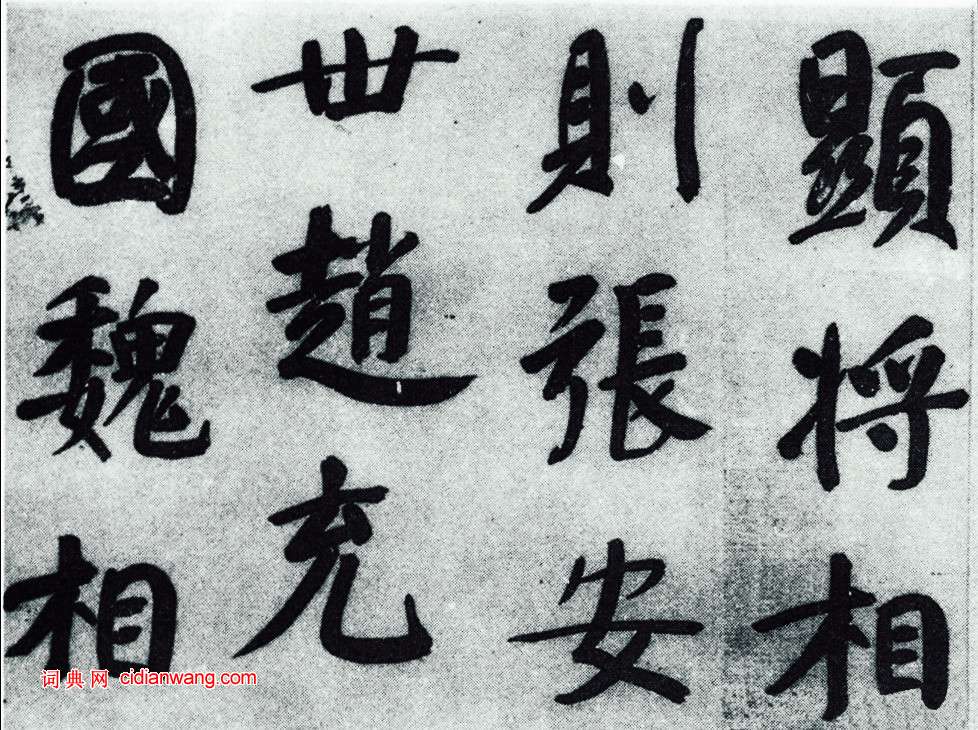 顯将相
則張安
世趙充
國魏相
词典网 cidianwang.com